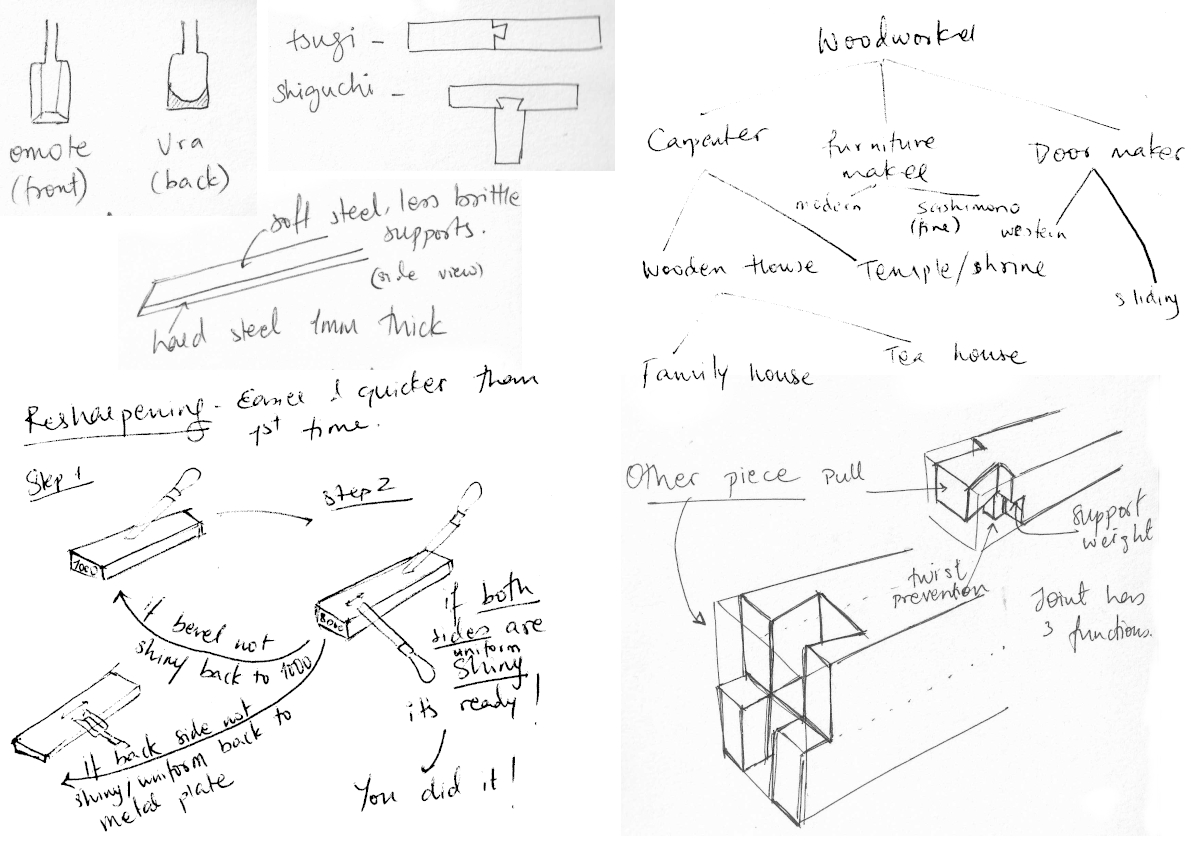 omote
(front)
Ura
(back)
tsugi -
shiguchi -
soft steel, less brittle
supports.
(side view)
hard steel 1mm thick
Resharpening - Easier & quicker than
1st time.
Step 1
1000
step 2
8000
if both
sides are
uniform
shiny
it's ready!
You did it!
If bevel not
shiny back to 1000
If back side not
shiny/uniform back to
metal plate
Woodworker
Carpenter
furniture
maker
Door maker
modern
sashimono
(fine)
western
sliding
Wooden house
Temple/shrine
Family house
Tea house
Other piece pull
support
weight
twist
prevention
Joint has
3 functions.